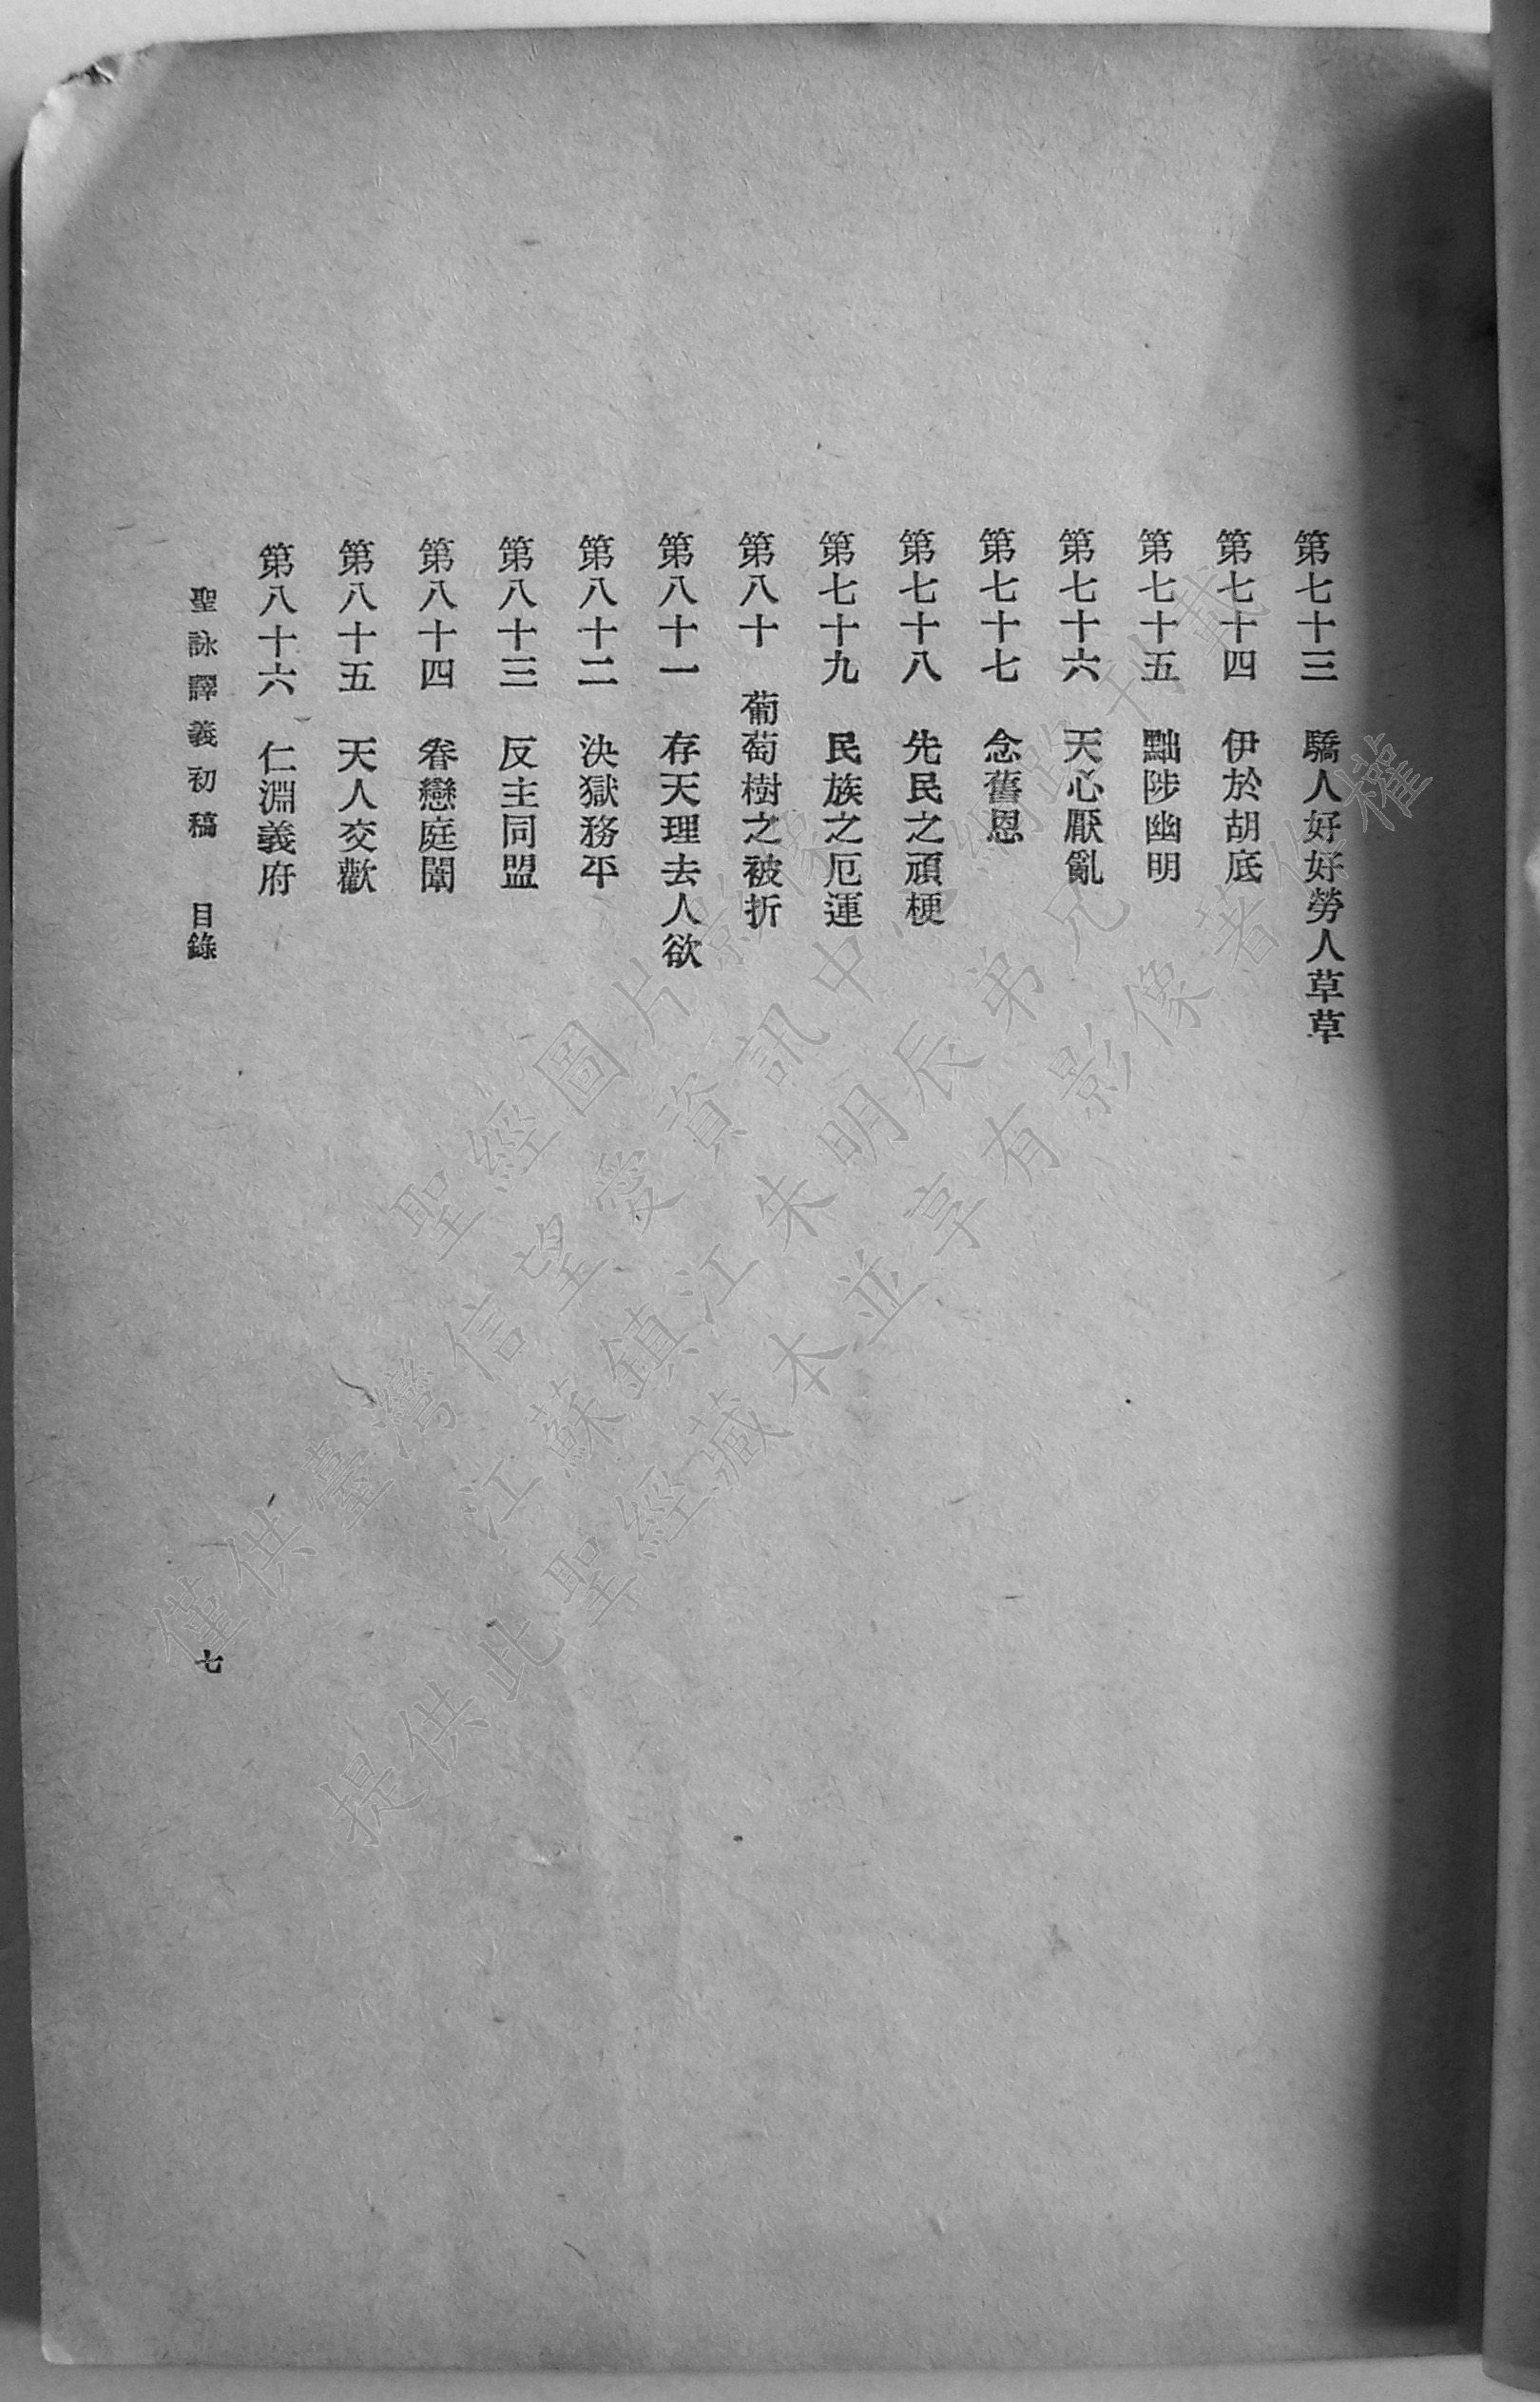 第七十三　驕人好好勞人草草
第七十四　伊於胡底
第七十五　黜陟幽明
第七十六　天心厭亂
第七十七　念舊恩
第七十八　先民之頑梗
第七十九　民族之厄運
第八十　葡萄樹之被折
第八十一　存天理去人欲
第八十二　決獄務平
第八十三　反主同盟
第八十四　眷戀庭闈
第八十五　天人交歡
第八十六　仁淵義府
聖詠譯義初稿　目錄
七
聖經圖片影像
僅供臺灣信望愛資訊中心網路刊載
江蘇鎮江朱明辰弟兄
提供此聖經藏本並享有影像著作權